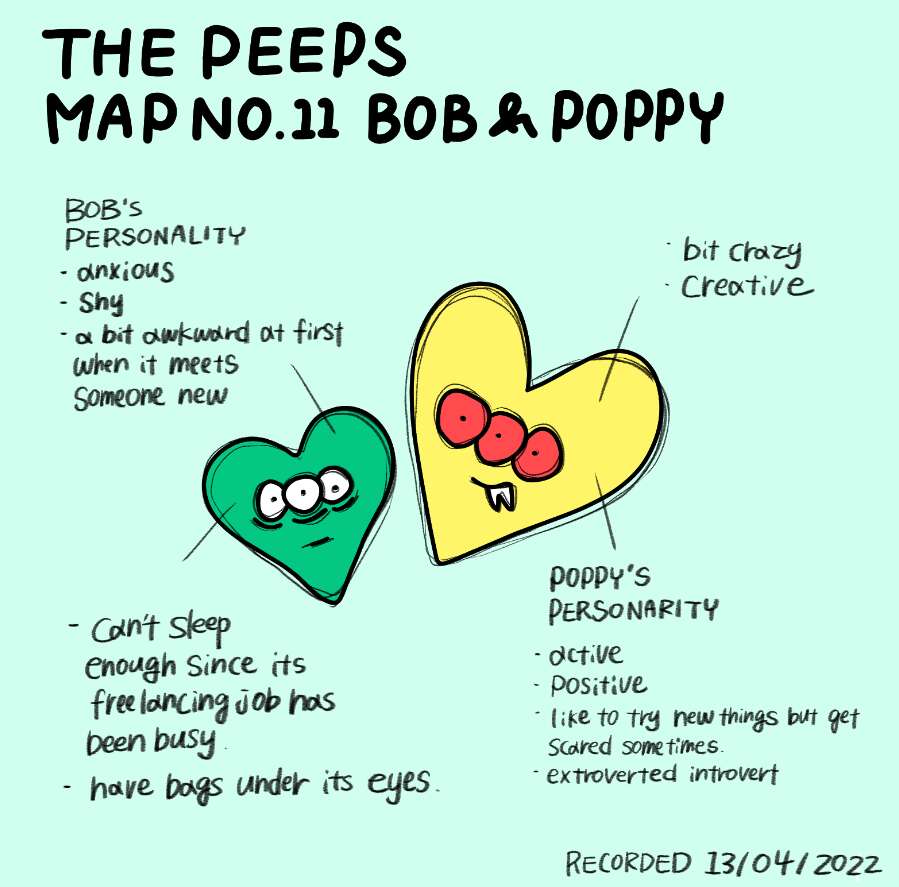 THE PEEPS
MAP NO.11 BOB & POPPY
BOB'S
PERSONALITY
- anxious
- Shy
- a bit awkward at first
when it meets
Someone new
- bit crazy
- Creative
- Can't Sleep
enough Since its
freelancing job has
been busy.
- have bags under its eyes.
POPPY'S
PERSONARITY
- active
- positive
- like to try new things but get
scared sometimes.
- extroverted introvert
RECORDED 13/04/2022